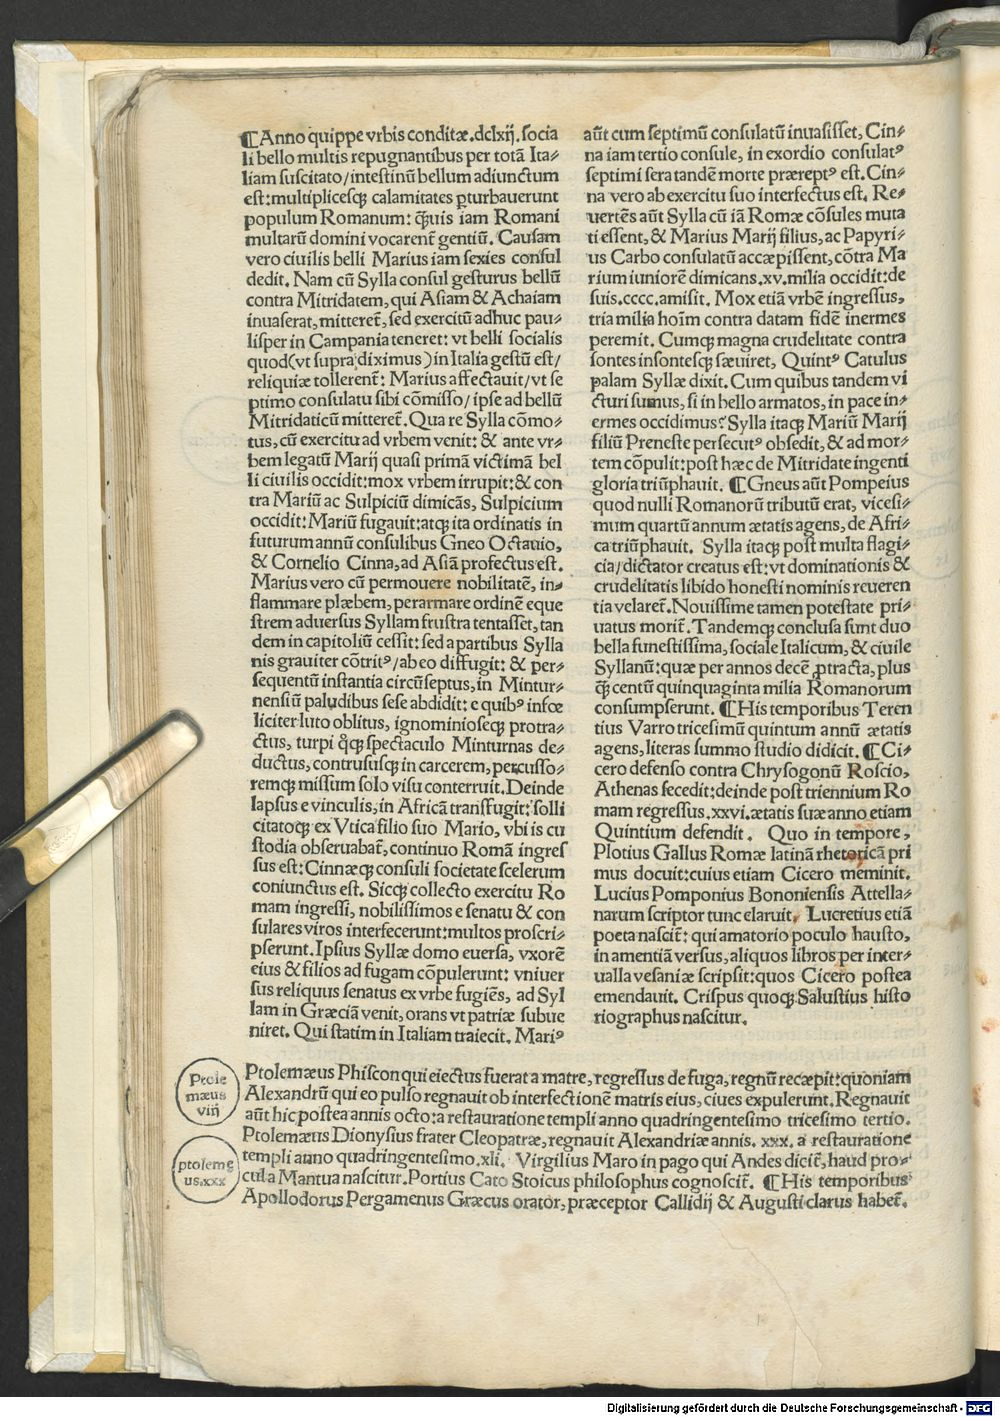 ¶Anno quippe vrbis conditæ.dclxij.socia
li bello multis repugnantibus per totã Ita⸗
liam suscitato/intestinũ bellum adiunctum
est:multiplicesq̃ calamitates ꝑturbauerunt
populum Romanum: q̃uis iam Romani
multarũ domini vocarent̃ gentiũ. Causam
vero ciuilis belli Marius iam sexies consul
dedit. Nam cũ Sylla consul gesturus bellũ
contra Mitridatem,qui Asiam & Achaiam
inuaserat,mitteret̃,sed exercitũ adhuc pau⸗
lisper in Campania teneret: vt belli socialis
quod(vt supra diximus)in Italia gestũ est/
reliquiæ tollerent̃: Marius affectauit/vt se
ptimo consulatu sibi cõmisso/ipse ad bellũ
Mitridaticũ mitteret̃.Qua re Sylla cõmo⸗
tus,cũ exercitu ad vrbem venit: & ante vr⸗
bem legatũ Marij quasi primã victimã bel
li ciuilis occidit:mox vrbem irrupit:& con
tra Mariũ ac Sulpiciũ dimicãs, Sulpicium
occidit:Mariũ fugauit:atq̃ ita ordinatis in
futurum annũ consulibus Gneo Octauio,
& Cornelio Cinna,ad Asiã profectus est.
Marius vero cũ permouere nobilitatẽ, in⸗
flammare plæbem, perarmare ordinẽ eque
strem aduersus Syllam frustra tentasset,tan
dem in capitoliũ cessit: sed a partibus Sylla
nis grauiter cõtrit⁹/ab eo diffugit: & per⸗
sequentũ instantia circũseptus,in Mintur⸗
nensiũ paludibus sese abdidit: e quib⁹ infœ
liciter luto oblitus, ignominioseq̃ protra⸗
ctus, turpi q̊q̃ spectaculo Minturnas de⸗
ductus,contrususq̃ in carcerem,percusso⸗
remq̃ missum solo visu conterruit.Deinde
lapsus e vinculis,in Africã transfugit: solli
citatoq̃ ex Vtica filio suo Mario, vbi is cu
stodia obseruabat̃,continuo Romã ingres
sus est:Cinnæq̃ consuli societate scelerum
coniunctus est. Sicq̃ collecto exercitu Ro
mam ingressi, nobilissimos e senatu & con
sulares viros interfecerunt:multos proscri⸗
pserunt.Ipsius Syllæ domo euersa, vxorẽ
eius & filios ad fugam cõpulerunt: vniuer
sus reliquus senatus ex vrbe fugiẽs, ad Syl
lam in Græciã venit,orans vt patriæ subue
niret. Qui statim in Italiam traiecit. Mari⁹
aũt cum septimũ consulatũ inuasisset, Cin⸗
na iam tertio consule, in exordio consulat⁹
septimi sera tandẽ morte prærept⁹ est.Cin⸗
na vero ab exercitu suo interfectus est. Re⸗
uertẽs aũt Sylla cũ iã Romæ cõsules muta
ti essent,& Marius Marij filius,ac Papyri⸗
us Carbo consulatũ accæpissent,cõtra Ma
rium iuniorẽ dimicans.xv.milia occidit:de
suis.cccc.amisit. Mox etiã vrbẽ ingressus,
tria milia hoĩm contra datam fidẽ inermes
peremit. Cumq̃ magna crudelitate contra
sontes insontesq̃ sæuiret, Quint⁹ Catulus
palam Syllæ dixit. Cum quibus tandem vi
cturi sumus, si in bello armatos, in pace in⸗
ermes occidimus? Sylla itaq̃ Mariũ Marij
filiũ Preneste persecut⁹ obsedit, & ad mor⸗
tem cõpulit:post hæc de Mitridate ingenti
gloria triũphauit. ¶Gneus aũt Pompeius
quod nulli Romanorũ tributũ erat, vicesi⸗
mum quartũ annum ætatis agens, de Afri⸗
ca triũphauit. Sylla itaq̃ post multa flagi⸗
cia/dictator creatus est:vt dominationis &
crudelitatis libido honesti nominis reueren
tia velaret̃.Nouissime tamen potestate pri⸗
uatus morit̃. Tandemq̃ conclusa sunt duo
bella funestissima, sociale Italicum, & ciuile
Syllanũ:quæ per annos decẽ ꝓtracta, plus
q̃ centũ quinquaginta milia Romanorum
consumpserunt. ¶His temporibus Teren
tius Varro tricesimũ quintum annũ ætatis
agens, literas summo studio didicit. ¶Ci⸗
cero defenso contra Chrysogonũ Roscio,
Athenas secedit:deinde post triennium Ro
mam regressus.xxvi.ætatis suæ anno etiam
Quintium defendit. Quo in tempore,
Plotius Gallus Romæ latinã rhetoricã pri
mus docuit:cuius etiam Cicero meminit.
Lucius Pomponius Bononiensis Attella⸗
narum scriptor tunc claruit. Lucretius etiã
poeta nascit̃: qui amatorio poculo hausto,
in amentiã versus,aliquos libros per inter⸗
ualla vesaniæ scripsit:quos Cicero postea
emendauit. Crispus quoq̃ Salustius histo
riographus nascitur.
Ptole
mæus
viij
Ptolemæus Phiscon qui eiectus fuerat a matre, regressus de fuga, regnũ recæpit:quoniam
Alexandrũ qui eo pulso regnauit ob interfectionẽ matris eius, ciues expulerunt.Regnauit
aũt hic postea annis octo:a restauratione templi anno quadringentesimo tricesimo tertio.
ptolemę
us.xxx
Ptolemæus Dionysius frater Cleopatræ,regnauit Alexandriæ annis. xxx. a restauratione
templi anno quadringentesimo.xli. Virgilius Maro in pago qui Andes dicit̃, haud pro⸗
cul a Mantua nascitur.Portius Cato Stoicus philosophus cognoscit̃. ¶His temporibus
Apollodorus Pergamenus Græcus orator,præceptor Callidij & Augusti clarus habet̃.
Digitalisierung gefördert durch die Deutsche Forschungsgemeinschaft - DFG